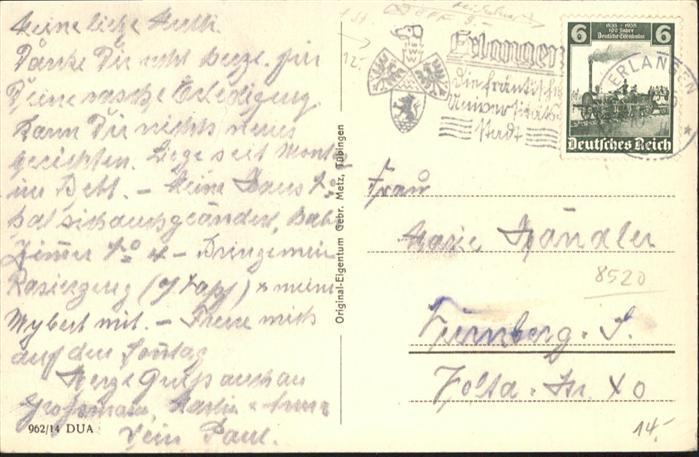 Meine liebe Mutti.
Danke Dir recht herzl. für
Deine rasche Erledigung
Kann Dir nichts neues
berichten. Liege seit Montag
im Bett. – Meine Haus No.
hat sich auch geändert,
Zimmer No 4 – Bringe mir
Rasierzeug u mein
Wybert mit. – Freue mich
auf den Sonntag
Herzl Gruß auch an
Großmama,
Dein Paul.
962/14 DUA
Original-Eigentum Gebr. Metz, Tübingen
Erlangen
die fränkische
Universitäts
stadt
6 1835–1935 6
100 Jahre
Deutsche Eisenbahn
Deutsches Reich
ERLANGEN
Frau
Marie Händler
8520
Nürnberg. S.
Str. 20
14,-